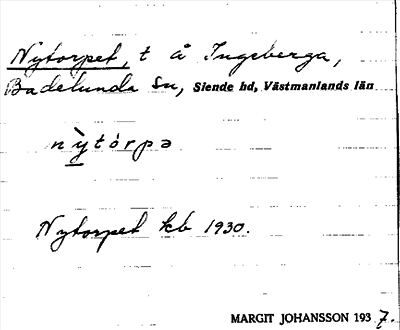 Nytorpet, t å Ingeberga,
Badelunda sn, Siende hd, Västmanlands län
nỳtórpə
Nytorpet kb 1930.
MARGIT JOHANSSON 1937.